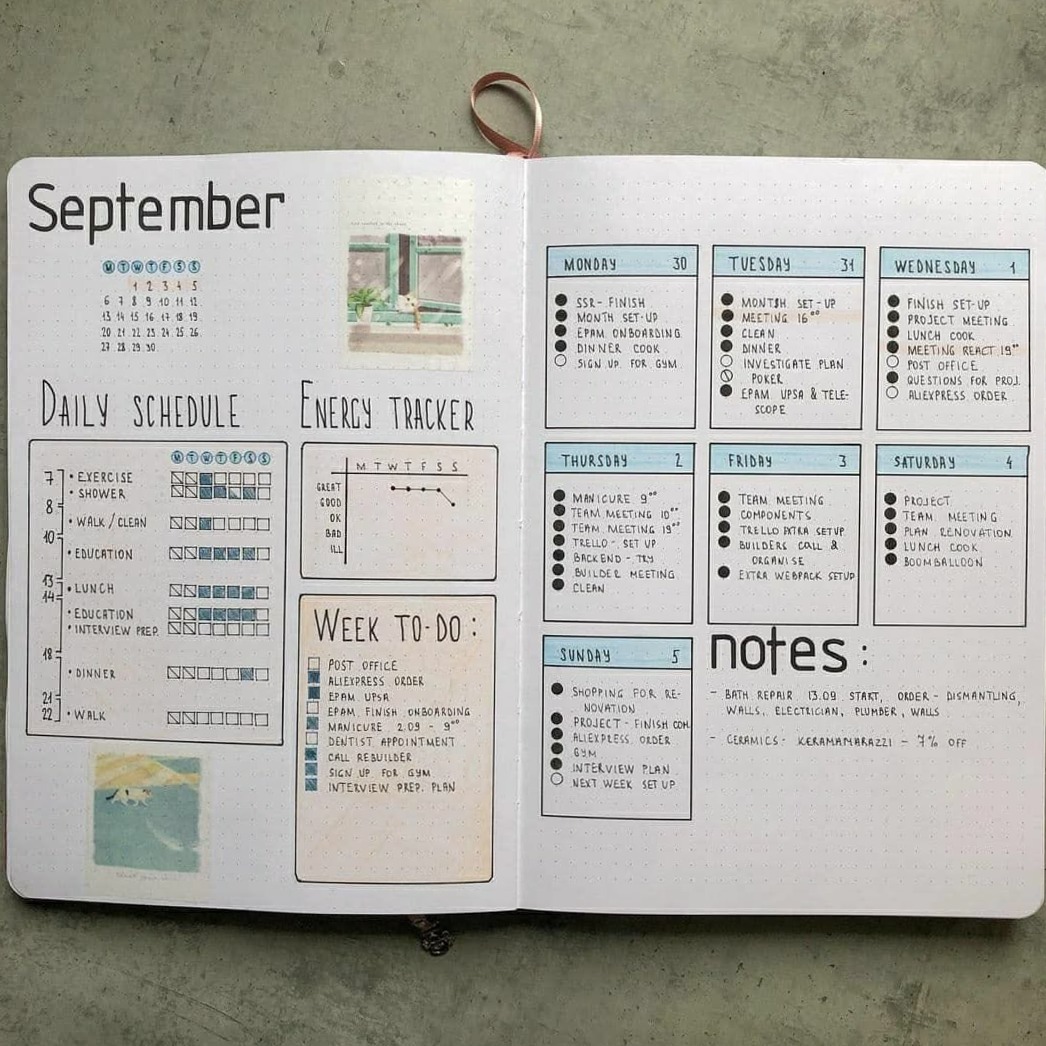 September
M T W T F S S
1 2 3 4 5
6 7 8 9 10 11 12
13 14 15 16 17 18 19
20 21 22 23 24 25 26
27 28 29 30
DAILY SCHEDULE
M T W T F S S
7
• EXERCISE
• SHOWER
8
• WALK / CLEAN
10
• EDUCATION
13
• LUNCH
14
• EDUCATION
• INTERVIEW PREP.
18
• DINNER
21
22
• WALK
ENERGY TRACKER
M T W T F S S
GREAT
GOOD
OK
BAD
ILL
WEEK TO-DO:
POST OFFICE
ALIEXPRESS ORDER
EPAM UPSA
EPAM FINISH ONBOARDING
MANICURE 2.09 - 9⁰⁰
DENTIST APPOINTMENT
CALL REBUILDER
SIGN UP FOR GYM
INTERVIEW PREP. PLAN
MONDAY 30
SSR- FINISH
MONTH SET-UP
EPAM ONBOARDING
DINNER COOK
SIGN UP FOR GYM
TUESDAY 31
MONTSH SET-UP
MEETING 16⁰⁰
CLEAN
DINNER
INVESTIGATE PLAN
POKER
EPAM UPSA & TELE-
SCOPE
WEDNESDAY 1
FINISH SET-UP
PROJECT MEETING
LUNCH COOK
MEETING REACT 19⁰⁰
POST OFFICE
QUESTIONS FOR PROJ.
ALIEXPRESS ORDER
THURSDAY 2
MANICURE 9⁰⁰
TEAM MEETING 10⁰⁰
TEAM MEETING 19⁰⁰
TRELLO - SET UP
BACKEND - TRY
BUILDER MEETING
CLEAN
FRIDAY 3
TEAM MEETING
COMPONENTS
TRELLO EXTRA SETUP
BUILDERS CALL &
ORGANISE
EXTRA WEBPACK SETUP
SATURDAY 4
PROJECT
TEAM MEETING
PLAN RENOVATION
LUNCH COOK
BOOMBALLOON
SUNDAY 5
SHOPPING FOR RE-
NOVATION
PROJECT - FINISH COM.
ALIEXPRESS ORDER
GYM
INTERVIEW PLAN
NEXT WEEK SET UP
notes:
- BATH REPAIR 13.09 START, ORDER - DISMANTLING,
WALLS, ELECTRICIAN, PLUMBER, WALLS
- CERAMICS- KERAMAMARAZZI - 7% OFF